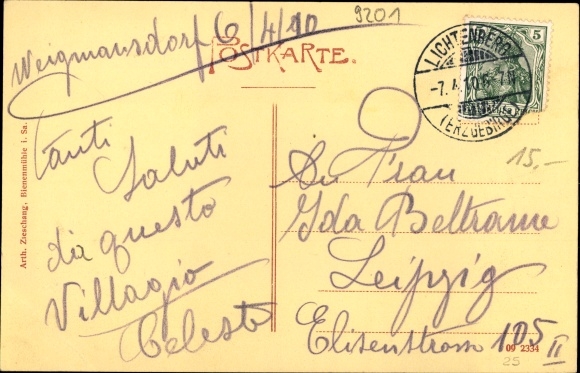 Weigmansdorf 6/4/10
9201
POSTKARTE.
5
LICHTENBERG
-7.4.10.6-7N
(ERZGEBIRGE)
Tanti
Saluti
da questo
Villagio
Celeste
Arth. Zieschang, Bienenmühle i. Sa.
15,-
An Frau
Ida Beltrame
Leipzig
Elisenstrasse 105 II
09 2334
25